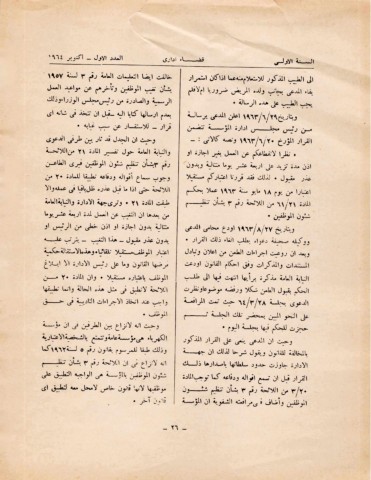 السنة الاولى
قضاء ادارى
العدد الاول - أكتوبر ١٩٦٤
الى الطبيب المذكور للاستعلام منه عما اذا كان استمرار
بقاء المدعى بجانب ولده المريض ضروريا ام لا فلم
يجب الطبيب على هذه الرسالة ٠
وبتاريخ ١٩٦٣/٦/٢٩ اعلن المدعى برسالة
من رئيس مجلس ادارة المؤسسة تتضمن
القرار المؤرخ ١٩٦٣/٦/٢٠ ونصه كالاتى : ـ
« نظرا لانقطاعكم عن العمل بغير اجازة او
اذن مدة تزيد على اربعة عشر يوما متتالية بدون
عذر مقبول ٠ لذلك فقد قررنا اعتباركم مستقيلا
اعتبارا من يوم ١٨ مايو سنة ١٩٦٣ عملا بحكم
المادة ٦١/٢١ من اللائحة رقم ٣ بشأن تنظيم
شئون الموظفين ٠
وبتاريخ ١٩٦٣/٨/٢٧ اودع محامى المدعى
ووكيله صحيفة دعواه بطلب الغاء ذلك القرار ٠
وبعد ان روعيت اجراءات الطعن من اعلان وتبادل
المستندات والمذكرات وفق احكام القانون اودعت
النيابة العامة مذكرة برأيها انتهت فيها الى طلب
الحكم بقبول الطعن شكلا ورفضه موضوعا ونظرت
الدعوى بجلسة ٦٤/٣/٢٨ حيث تمت المرافعة
على النحو المبين بمحضر تلك الجلسة ثم
حجزت للحكم فيها بجلسة اليوم ٠
وحيث ان المدعى ينعى على القرار المذكور
بالمخالفة للقانون ويقول شرحا لذلك ان جهة
الادارة جاوزت حدود سلطاتها باصدارها ذلك
القرار قبل ان تسمع اقواله ودفاعه كما توجب المادة
٣/٢٠ من اللائحة رقم ٣ بشأن تنظيم شئون
الموظفين وأضاف فى مرافعته الشفوية ان المؤسسة
خالفت ايضا التعليمات العامة رقم ٣ لسنة ١٩٥٧
بشأن تغيب الموظفين وتأخرهم عن مواعيد العمل
الرسمية والصادرة من رئيس مجلس الوزراء وذلك
بعدم ارسالها كتابا اليه سبق ان تتخذ فى شأنه اى
قرار ـ للاستفسار عن سبب غيابه ٠
وحيث ان الجدل قد ثار بين طرفى الدعوى
والنيابة العامة حول تفسير المادة ٢١ من اللائحة
رقم ٣ بشأن تنظيم شئون الموظفين فيرى الطاعن
وجوب سماع أقواله ودفاعه تطبيقا لحكم المادة ٢٠ من
اللائحة حتى اذا ما قبل عذره ظل باقيا فى عمله والا
طبقت المادة ٢١ ٠ وترى جهة الادارة والنيابة العامة
من بعدها ان التغيب عن العمل لمدة اربعة عشر يوما
متتالية بدون اجازة او اذن خطى من الرئيس او
بدون عذر مقبول ـ هذا التغيب ـ يترتب عليه
اعتبار الموظف مستقيلا تلقائيا وهذه الاستقالة حكمية
بقوة القانون وما على رئيس الادارة الا الابلاغ
الموظف باعتباره مستقيلا ٠ وان المادة ٢٠ من
اللائحة لا تطبق فى مثل هذه الحالة وانما يكون
واجب عند اتخاذ الاجراءات التأديبية فى غير
ذلك ٠
وحيث انه لا نزاع بين الطرفين فى ان مؤسسة
الكهرباء هى مؤسسة عامة وتتمتع بالشخصية الاعتبارية
وذلك طبقا للمرسوم بقانون رقم لسنة ١٩٦٢ كما
انه لا نزاع فى ان اللائحة رقم ٣ بشأن تنظيم
شئون الموظفين بالمؤسسة هى الواجبة التطبيق على
موظفيها لانها قانون خاص لا محل معه لتطبيق اى
قانون آخر ٠
ـ ٢٦ ـ